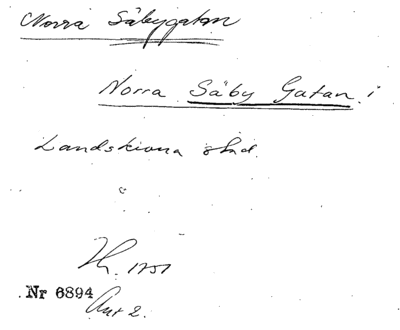 Norra Säbygatan
Norra Säby Gatan i
Landskrona stad.
Th. 1751
Nr 6894
Ant 2.